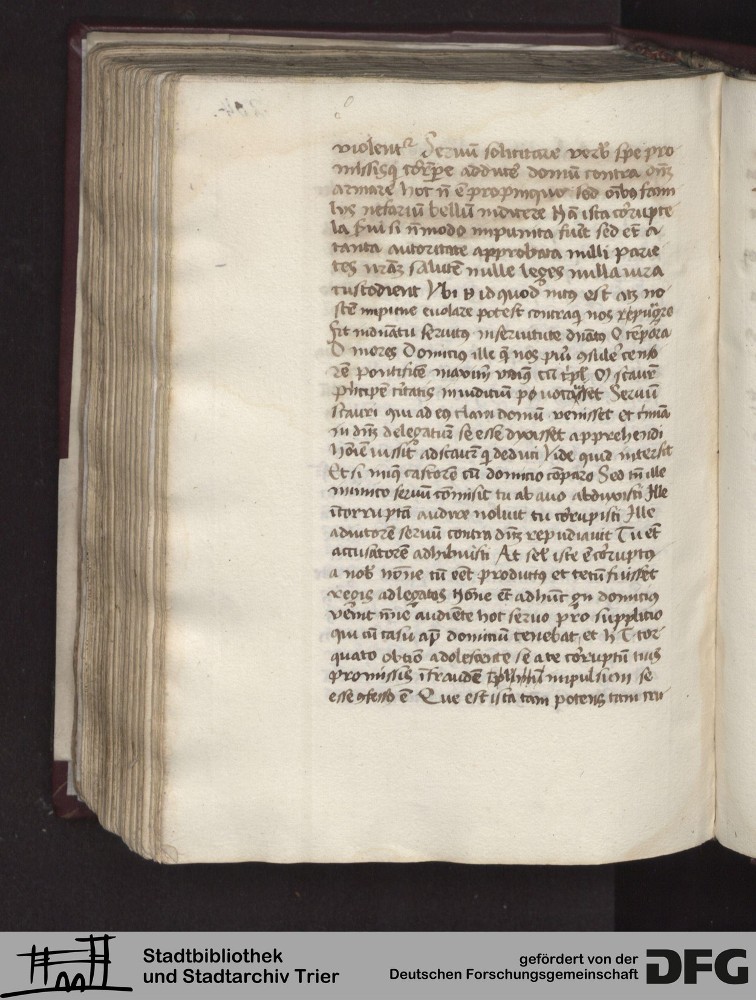 violent Servū solicitare verb spe pro
missisq corrūpe adducē domū contra dnm̄
armare hoc n̄ ē propinquo sed oībꝯ fam
lijs nefariū bellū indicere Nā ista corrupte
la fui si nō modo impunita fuīt sed et̄ a
tanta autoritate approbata nulli parie
tes nr̄am salutē nulle leges nulla iura
custodient Ubi n̄ id quod intꝯ est atq no
stm̄ impune evolare potest contraq nos repugnare
fit in dn̄atu servitus in servitute dn̄atꝯ O tēpora
O mores Domicius ille q̄ nos pueri cōsulē censo
rē pontificē maximū vidimꝯ cū tr̄pl M scaurū
pn̄cipē civitatis in iudiciū po vocasset Servū
scauri qui ad eū clam domū venisset et crimīa
in dnm̄ delaturū se esse dixisset apprehendi
hoīem iussit ad scaurū q̄ deduci Vide quid intersit
Et si iniq̄ castorē cū domicio cōparo Sed tn̄ ille
inimico servū remisit tu ab avo abduxisti Ille
īcorruptū audire noluit tu corrupisti Ille
adiutorē servū contra dnm̄ repudiavit Tu et̄
accusatorē adhibuisti At sel iste ē corruptꝯ
a nob nōne cū eēt productꝯ et tecū fuisset
regis ad legatos Nōne et̄ ad hūc gn̄ domiciꝯ
vēnit mē audiēte hoc servo pro supplicio
qui cū casu ap̄ domiciū cenebat et h T tor
quato optīo adolescēte se a te corruptū tuis
promissis ī fraudē impulsum se
esse cōfessꝯ ē Que est ista tam potens tam cru
Stadtbibliothek
und Stadtarchiv Trier
gefördert von der
Deutschen Forschungsgemeinschaft
DFG